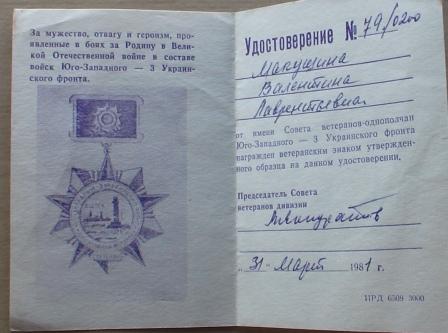 За мужество, отвагу и героизм, про-
явленные в боях за Родину в Вели-
кой Отечественной войне в составе
войск Юго-Западного — 3 Украин-
ского фронта.
Удостоверение № 79/0200
Макушина
Валентина
Лаврентьевна
от имени Совета ветеранов-однополчан
Юго-Западного — 3 Украинского фронта
награжден ветеранским знаком утвержден-
ного образца на данном удостоверении.
Председатель Совета
ветеранов дивизии
„31“ Март 1981 г.
ИРД 6509 3000